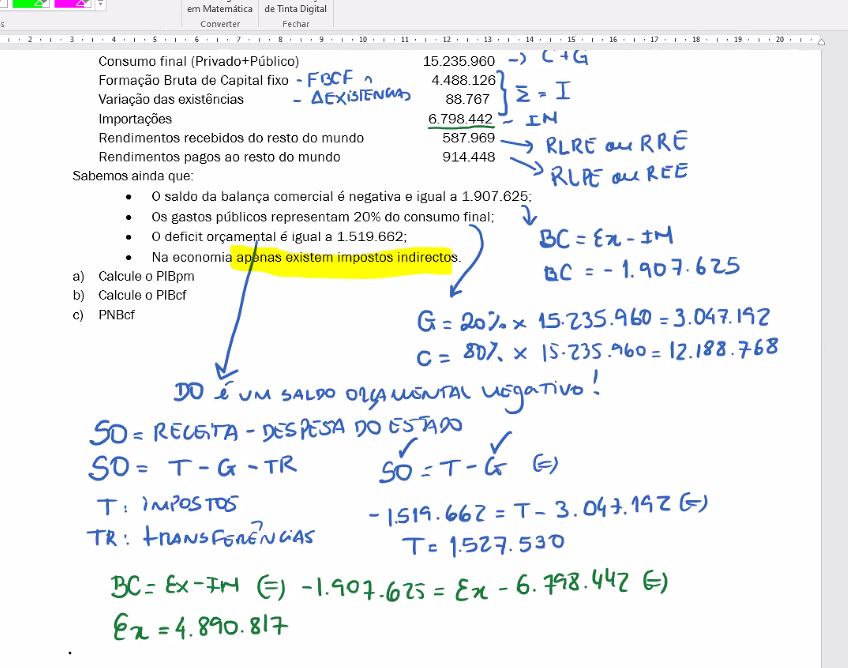 em Matemática
de Tinta Digital
Converter
Fechar
2 1 2 3 4 5 6 7 8 9 10 11 12 13 14 15 16 17 18 19 20
Consumo final (Privado+Público) 15.235.960 -> C+G
Formação Bruta de Capital fixo - FBCF 4.488.126
Variação das existências - ΔEXISTÊNCIAS 88.767
Σ = I
Importações 6.798.442 - IM
Rendimentos recebidos do resto do mundo 587.969 RLRE ou RRE
Rendimentos pagos ao resto do mundo 914.448 RLPE ou REE
Sabemos ainda que:
• O saldo da balança comercial é negativa e igual a 1.907.625;
• Os gastos públicos representam 20% do consumo final;
• O deficit orçamental é igual a 1.519.662;
• Na economia apenas existem impostos indirectos.
BC = Ex - IM
BC = - 1.907.625
a) Calcule o PIBpm
b) Calcule o PIBcf
c) PNBcf
G = 20% × 15.235.960 = 3.047.192
C = 80% × 15.235.960 = 12.188.768
DO é UM SALDO ORÇAMENTAL NEGATIVO!
SO = RECEITA - DESPESA DO ESTADO
SO = T - G - TR
SO = T - G (=)
T: IMPOSTOS
- 1.519.662 = T - 3.047.192 (=)
TR: TRANSFERÊNCIAS
T = 1.527.530
BC = EX - IM (=) -1.907.625 = Ex - 6.798.442 (=)
Ex = 4.890.817